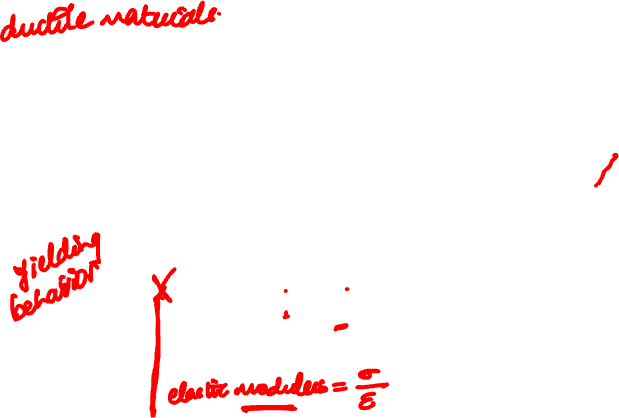 ductile materials.
yielding
behavior
elastic modulus = σ/ε